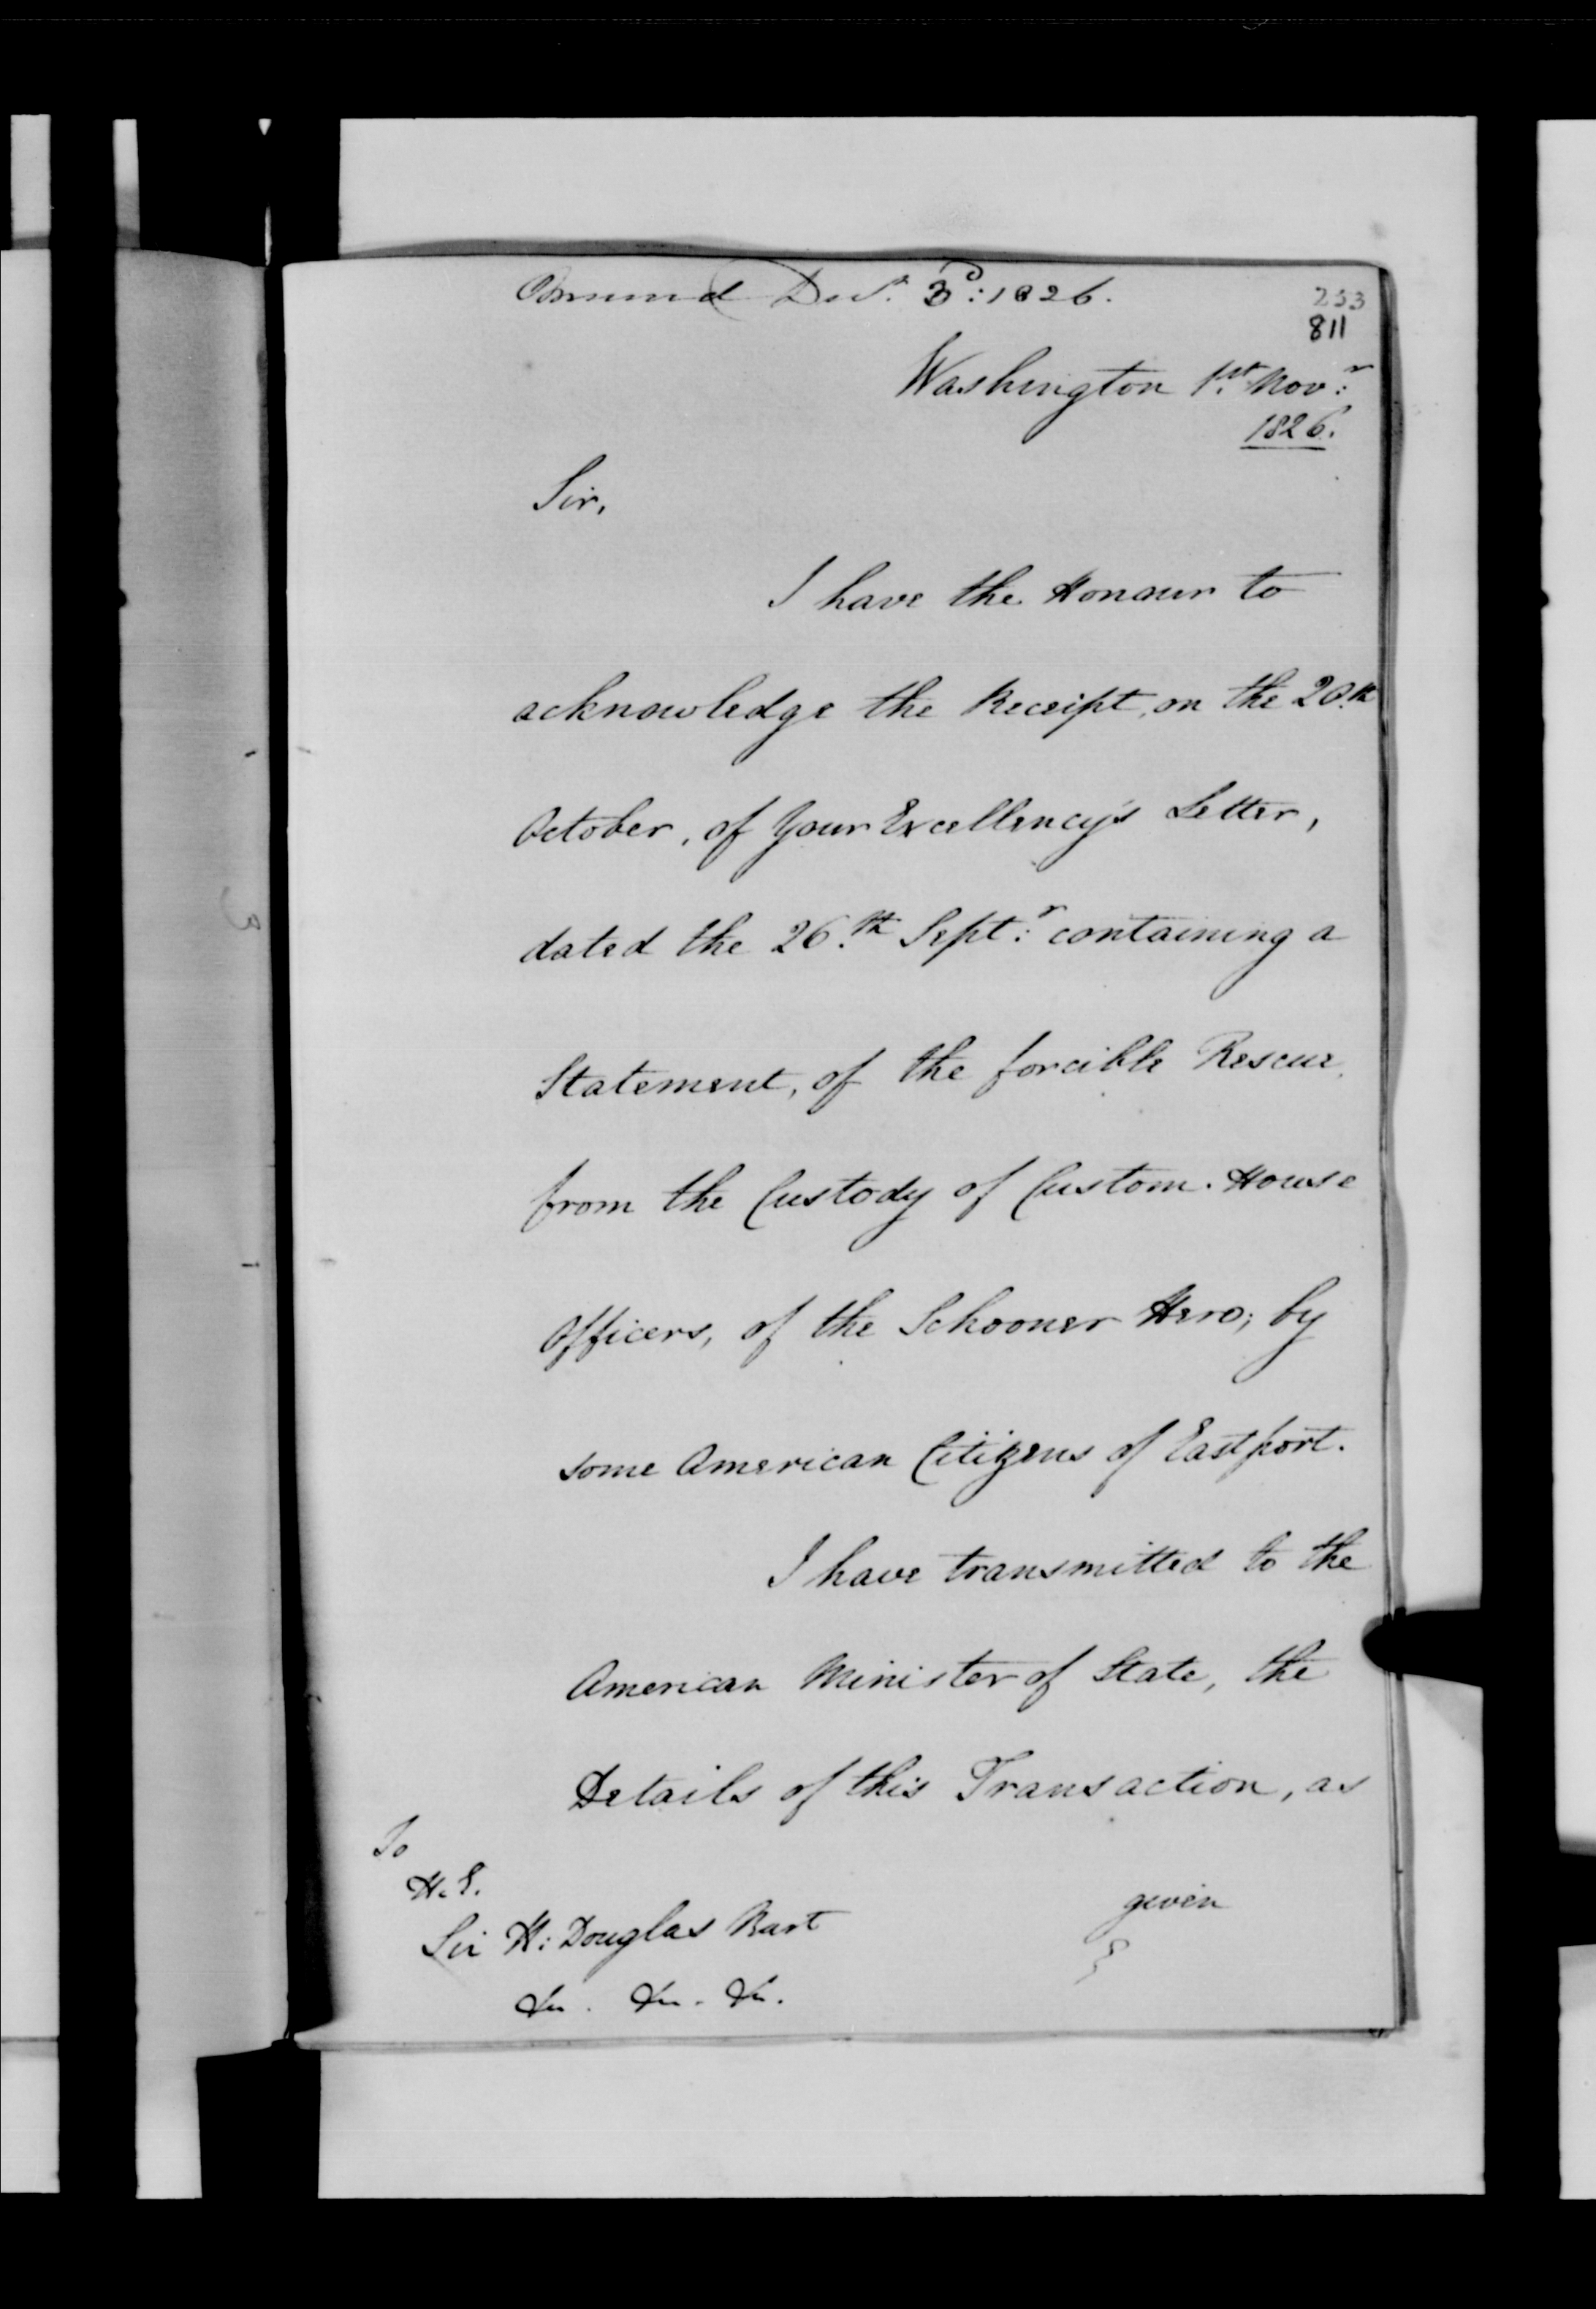 Decr. 3d: 1826.
253
811
Washington 1st. Novr:
1826.
Sir,
I have the Honour to
acknowledge the Receipt, on the 20.th
October, of Your Excellency's Letter,
dated the 26.th Septr: containing a
Statement, of the forcible Rescue,
from the Custody of Custom-House
Officers, of the Schooner Hero; by
some American Citizens of Eastport.
I have transmitted to the
American Minister of State, the
Details of this Transaction, as
given
To
H. E.
Sir H: Douglas Bart
&c. &c. &c.